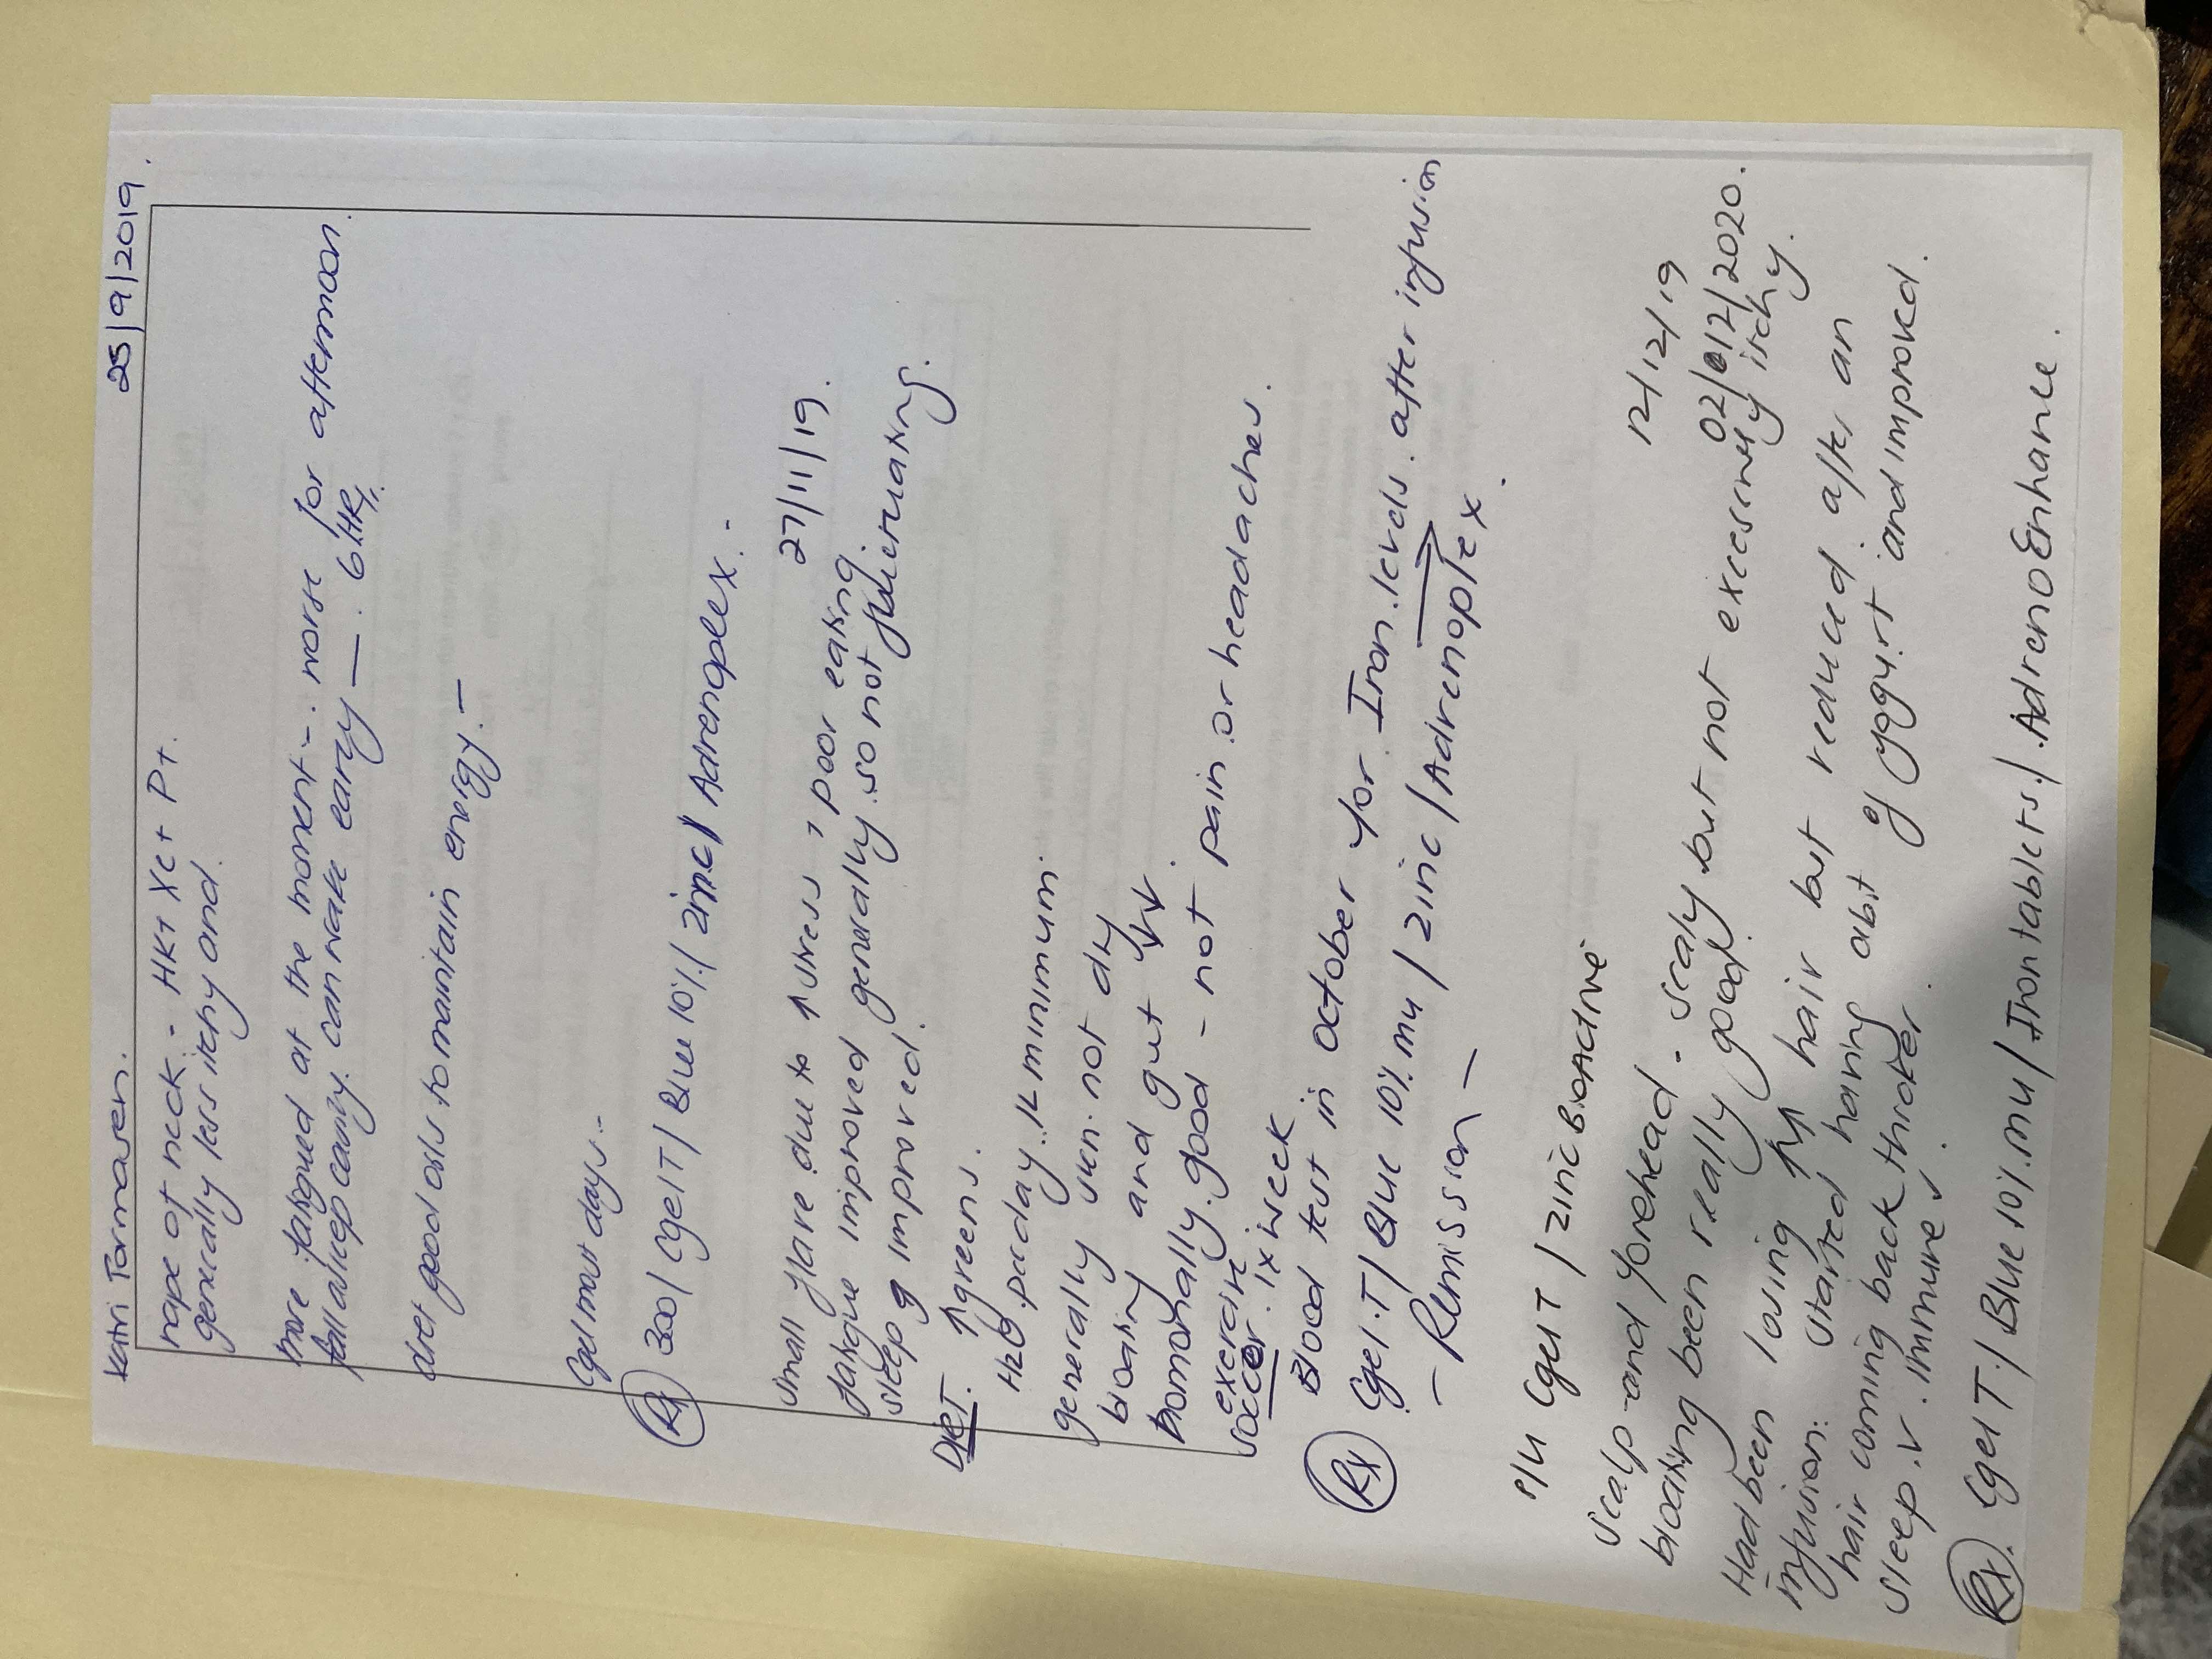 Katri Tormasen. 25/9/2019.
nape of neck - HK+ XC+ P+.
generally less itchy and
more fatigued at the moment - worse for afternoon.
fall asleep easily. can wake early — . 6 HRs.
diet good oils to maintain energy. -
Cgel most days.-
(Rx) 300/ Cgel T/ Blue 10%/ Zinc/ Adrenoplex. -
27/11/19.
small flare due to ↑ stress, poor eating
fatigue improved generally. so not
sleep improved.
DIET. ↑ greens.
H2O. per day. 1L minimum.
generally skin. not dry
bloating and gut ↓↓.
hormonally. good - not pain. or headaches.
exercise
soccer. 1x week
Blood test in october for Iron. levels. after infusion
(Rx) Cgel.T/ Blue 10%. mu / zinc / Adrenoplex.
- Remission -
12/12/19
P/U Cgel T / zinc BioActive
02/12/2020.
scalp and forehead - scaly but not excessively itchy.
bloating been really good.
Had been losing ↑↑ hair but reduced after an
infusion. started having a bit of yogurt and improved.
hair coming back thicker.
sleep. ✓. immune ✓
(Rx). Cgel T./ Blue 10%. mu/ Iron tablets./ AdrenoEnhance.